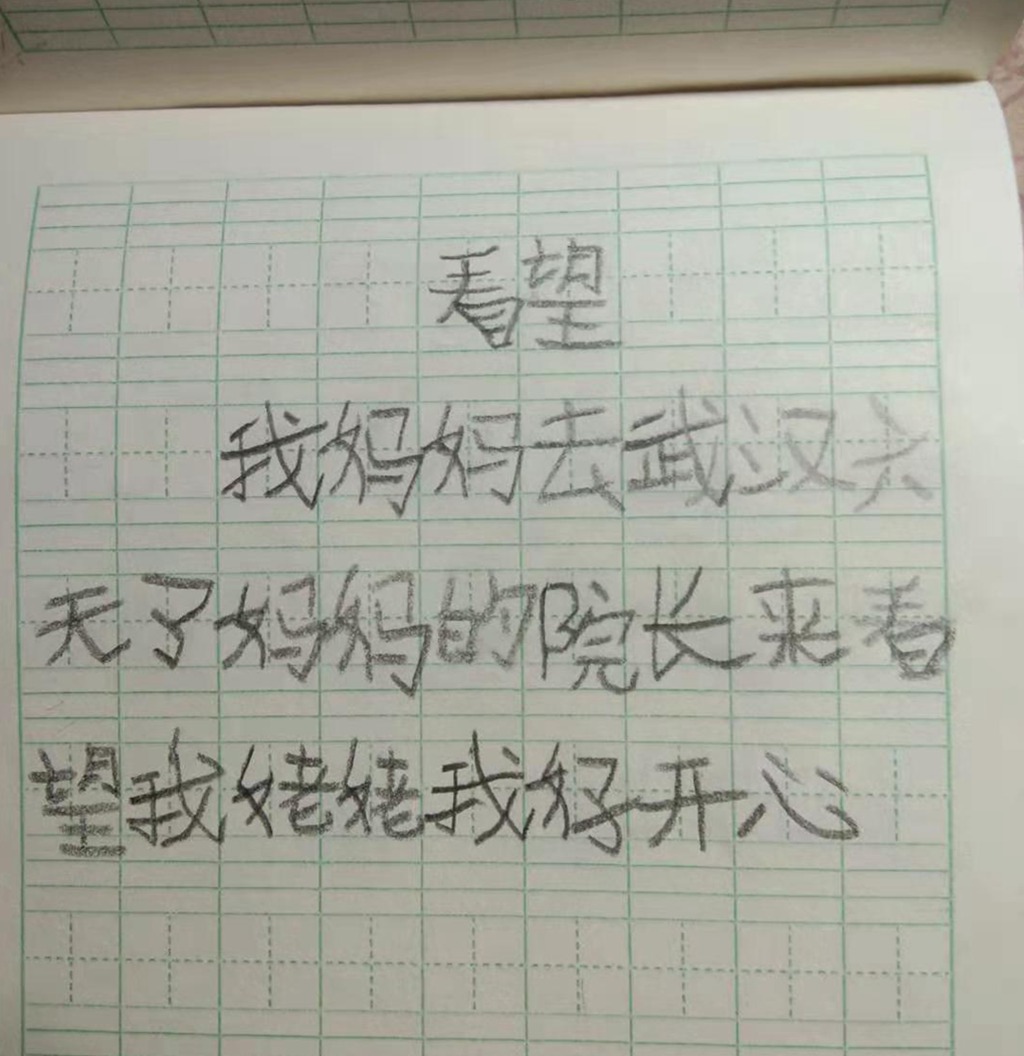 看望
我妈妈去武汉六
天了妈妈的院长来看
望我姥姥我好开心